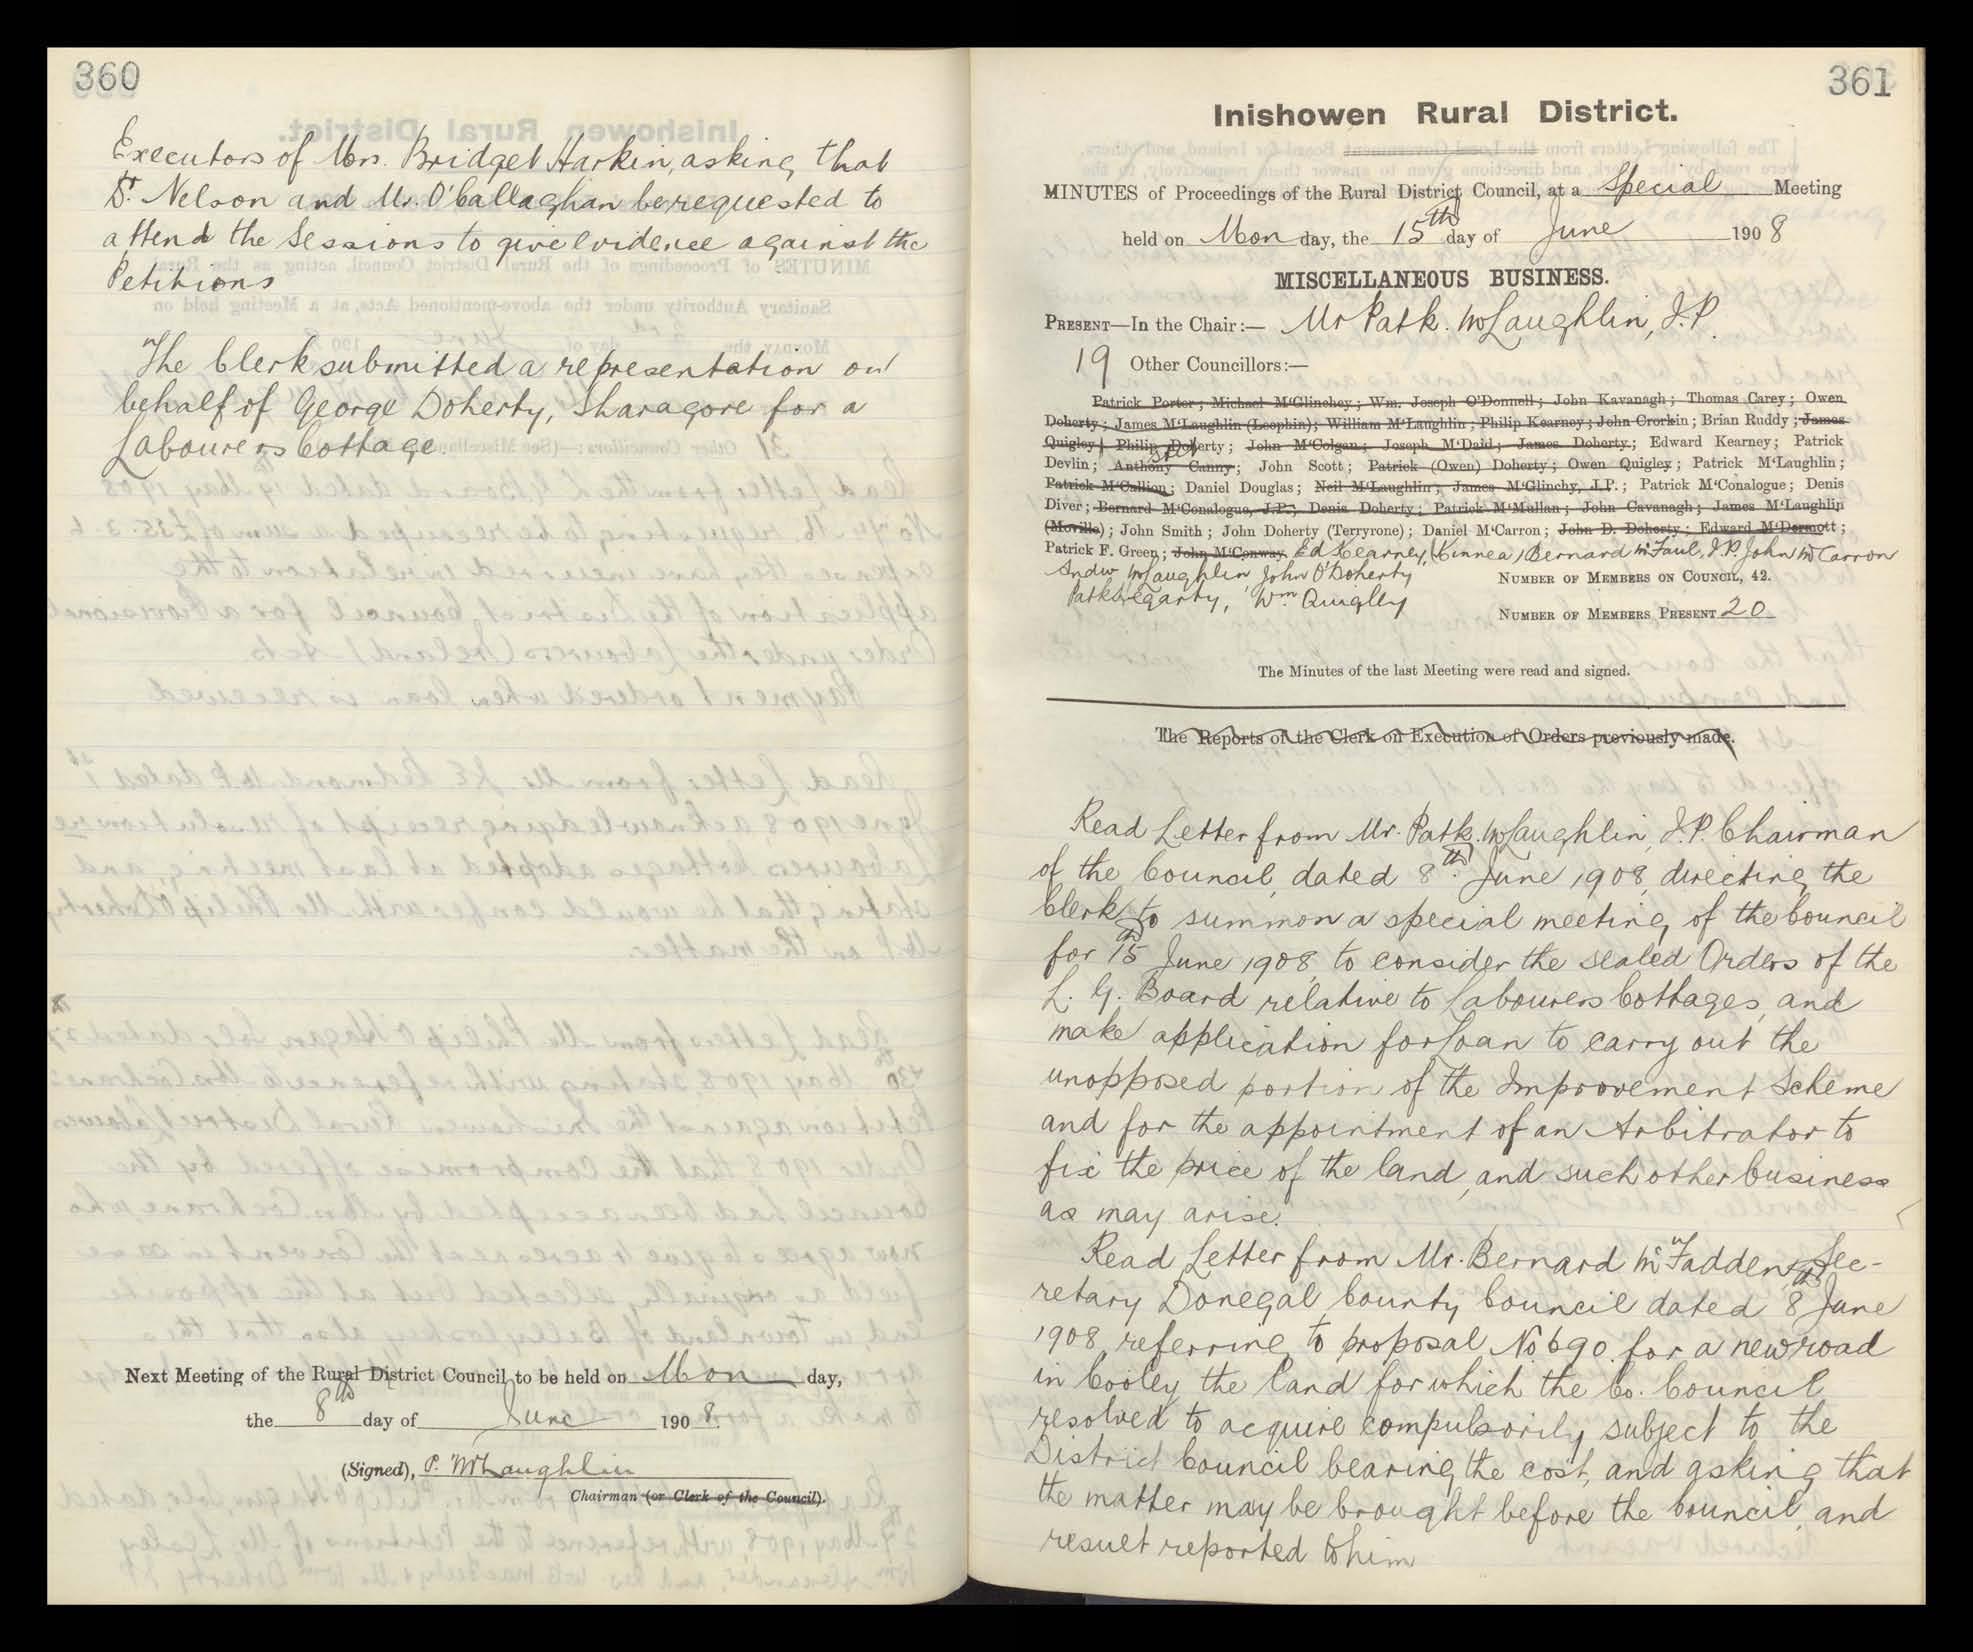 360
Executors of Mrs. Bridget Harkin, asking that
Dr. Nelson and Mr. O'Callaghan be requested to
attend the Sessions to give evidence against the
Petitions
The Clerk submitted a representation on
behalf of George Doherty, Sharagore for a
Labourers Cottage.
Next Meeting of the Rural District Council to be held on Mon day,
the 8th day of June 1908.
(Signed), P. McLaughlin
Chairman (or Clerk of the Council).
361
Inishowen Rural District.
MINUTES of Proceedings of the Rural District Council, at a Special Meeting
held on Mon day, the 15th day of June 1908
MISCELLANEOUS BUSINESS.
PRESENT—In the Chair:— Mr Patk. McLaughlin, J.P.
19 Other Councillors:—
Patrick Porter; Michael M'Glinchey; Wm. Joseph O'Donnell; John Kavanagh; Thomas Carey; Owen
Doherty; James M'Laughlin (Leophin); William M'Laughlin; Philip Kearney; John Crorkin; Brian Ruddy; James
Quigley; Philip Doherty; John M'Colgan; Joseph M'Daid; James Doherty.; Edward Kearney; Patrick
Devlin; Anthony Canny; John Scott; Patrick (Owen) Doherty; Owen Quigley; Patrick M'Laughlin;
Patrick M'Callion; Daniel Douglas; Neil M'Laughlin; James M'Glinchy, J.P.; Patrick M'Conalogue; Denis
Diver; Bernard M'Conalogue, J.P.; Denis Doherty; Patrick M'Mullan; John Cavanagh; James M'Laughlin
(Moville); John Smith; John Doherty (Terryrone); Daniel M'Carron; John D. Doherty; Edward M'Dermott;
Patrick F. Green; John M'Conway. Ed Kearney, (Kinnea) Bernard McFaul, J.P. John McCarron
Andw McLaughlin, John O'Doherty
Patk Hegarty, Wm Quigley
NUMBER OF MEMBERS ON COUNCIL, 42.
NUMBER OF MEMBERS PRESENT 20
The Minutes of the last Meeting were read and signed.
The Reports of the Clerk on Execution of Orders previously made.
Read Letter from Mr. Patk. McLaughlin, J.P. Chairman
of the Council, dated 8th June 1908, directing the
Clerk to summon a special meeting of the Council
for 15th June 1908, to consider the sealed Orders of the
L. G. Board relative to Labourers Cottages, and
make application for Loan to carry out the
unopposed portion of the Improvement Scheme
and for the appointment of an Arbitrator to
fix the price of the land, and such other business
as may arise.
Read Letter from Mr. Bernard McFadden, Sec-
retary Donegal County Council dated 8th June
1908, referring to proposal No 690 for a new road
in Cooley the land for which the Co. Council
resolved to acquire compulsorily subject to the
District Council bearing the cost, and asking that
the matter may be brought before the Council, and
result reported to him